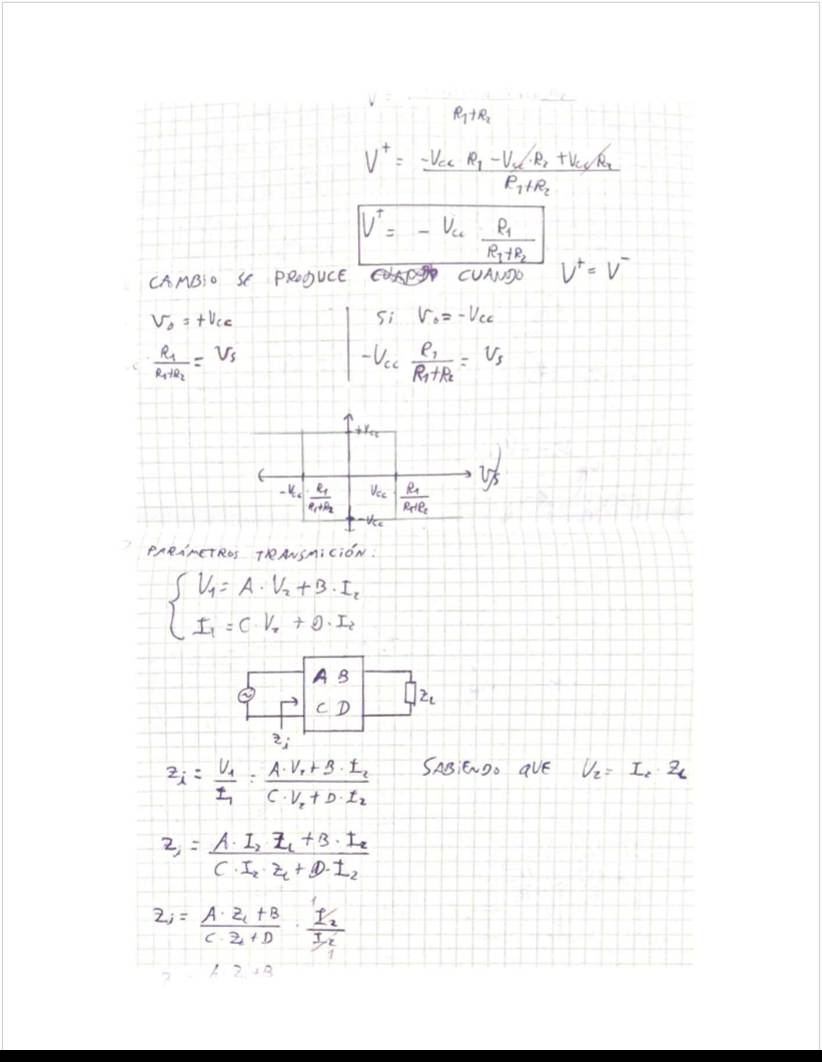 V =
R₁+R₂
V⁺ = (-Vcc R₁ - Vcc·R₂ + Vcc R₂)/(R₁+R₂)
V⁺ = - Vcc R₁/(R₁+R₂)
CAMBIO SE PRODUCE CUANDO V⁺ = V⁻
V₀ = +Vcc
R₁/(R₁+R₂) = Vs
Si V₀ = -Vcc
-Vcc R₁/(R₁+R₂) = Vs
+Vcc
Vs
-Vcc R₁/(R₁+R₂)
Vcc R₁/(R₁+R₂)
-Vcc
PARÁMETROS TRANSMICIÓN:
V₁ = A·V₂ + B·I₂
I₁ = C·V₂ + D·I₂
A B
C D
ZL
Zi
Zi = V₁/I₁ = (A·V₂ + B·I₂)/(C·V₂ + D·I₂) SABIENDO QUE V₂ = I₂·ZL
Zi = (A·I₂·ZL + B·I₂)/(C·I₂·ZL + D·I₂)
Zi = (A·ZL + B)/(C·ZL + D) · I₂/I₂
1
1